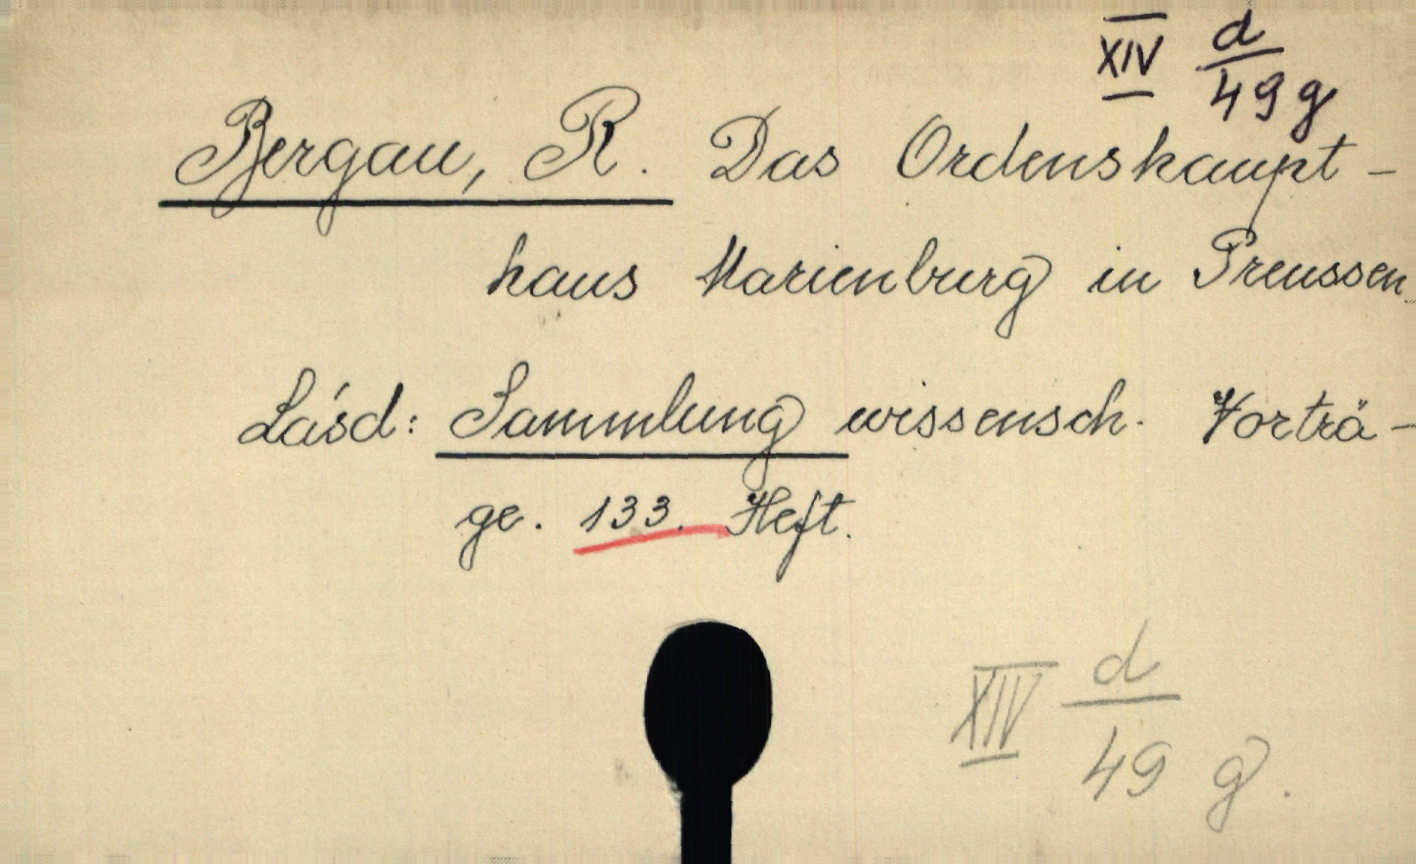 XIV d/49 g
Bergau, R. Das Ordenshaupt-
haus Marienburg in Preussen.
Lásd: Sammlung wissensch. Vorträ-
ge. 133. Heft.
XIV d/49 g.